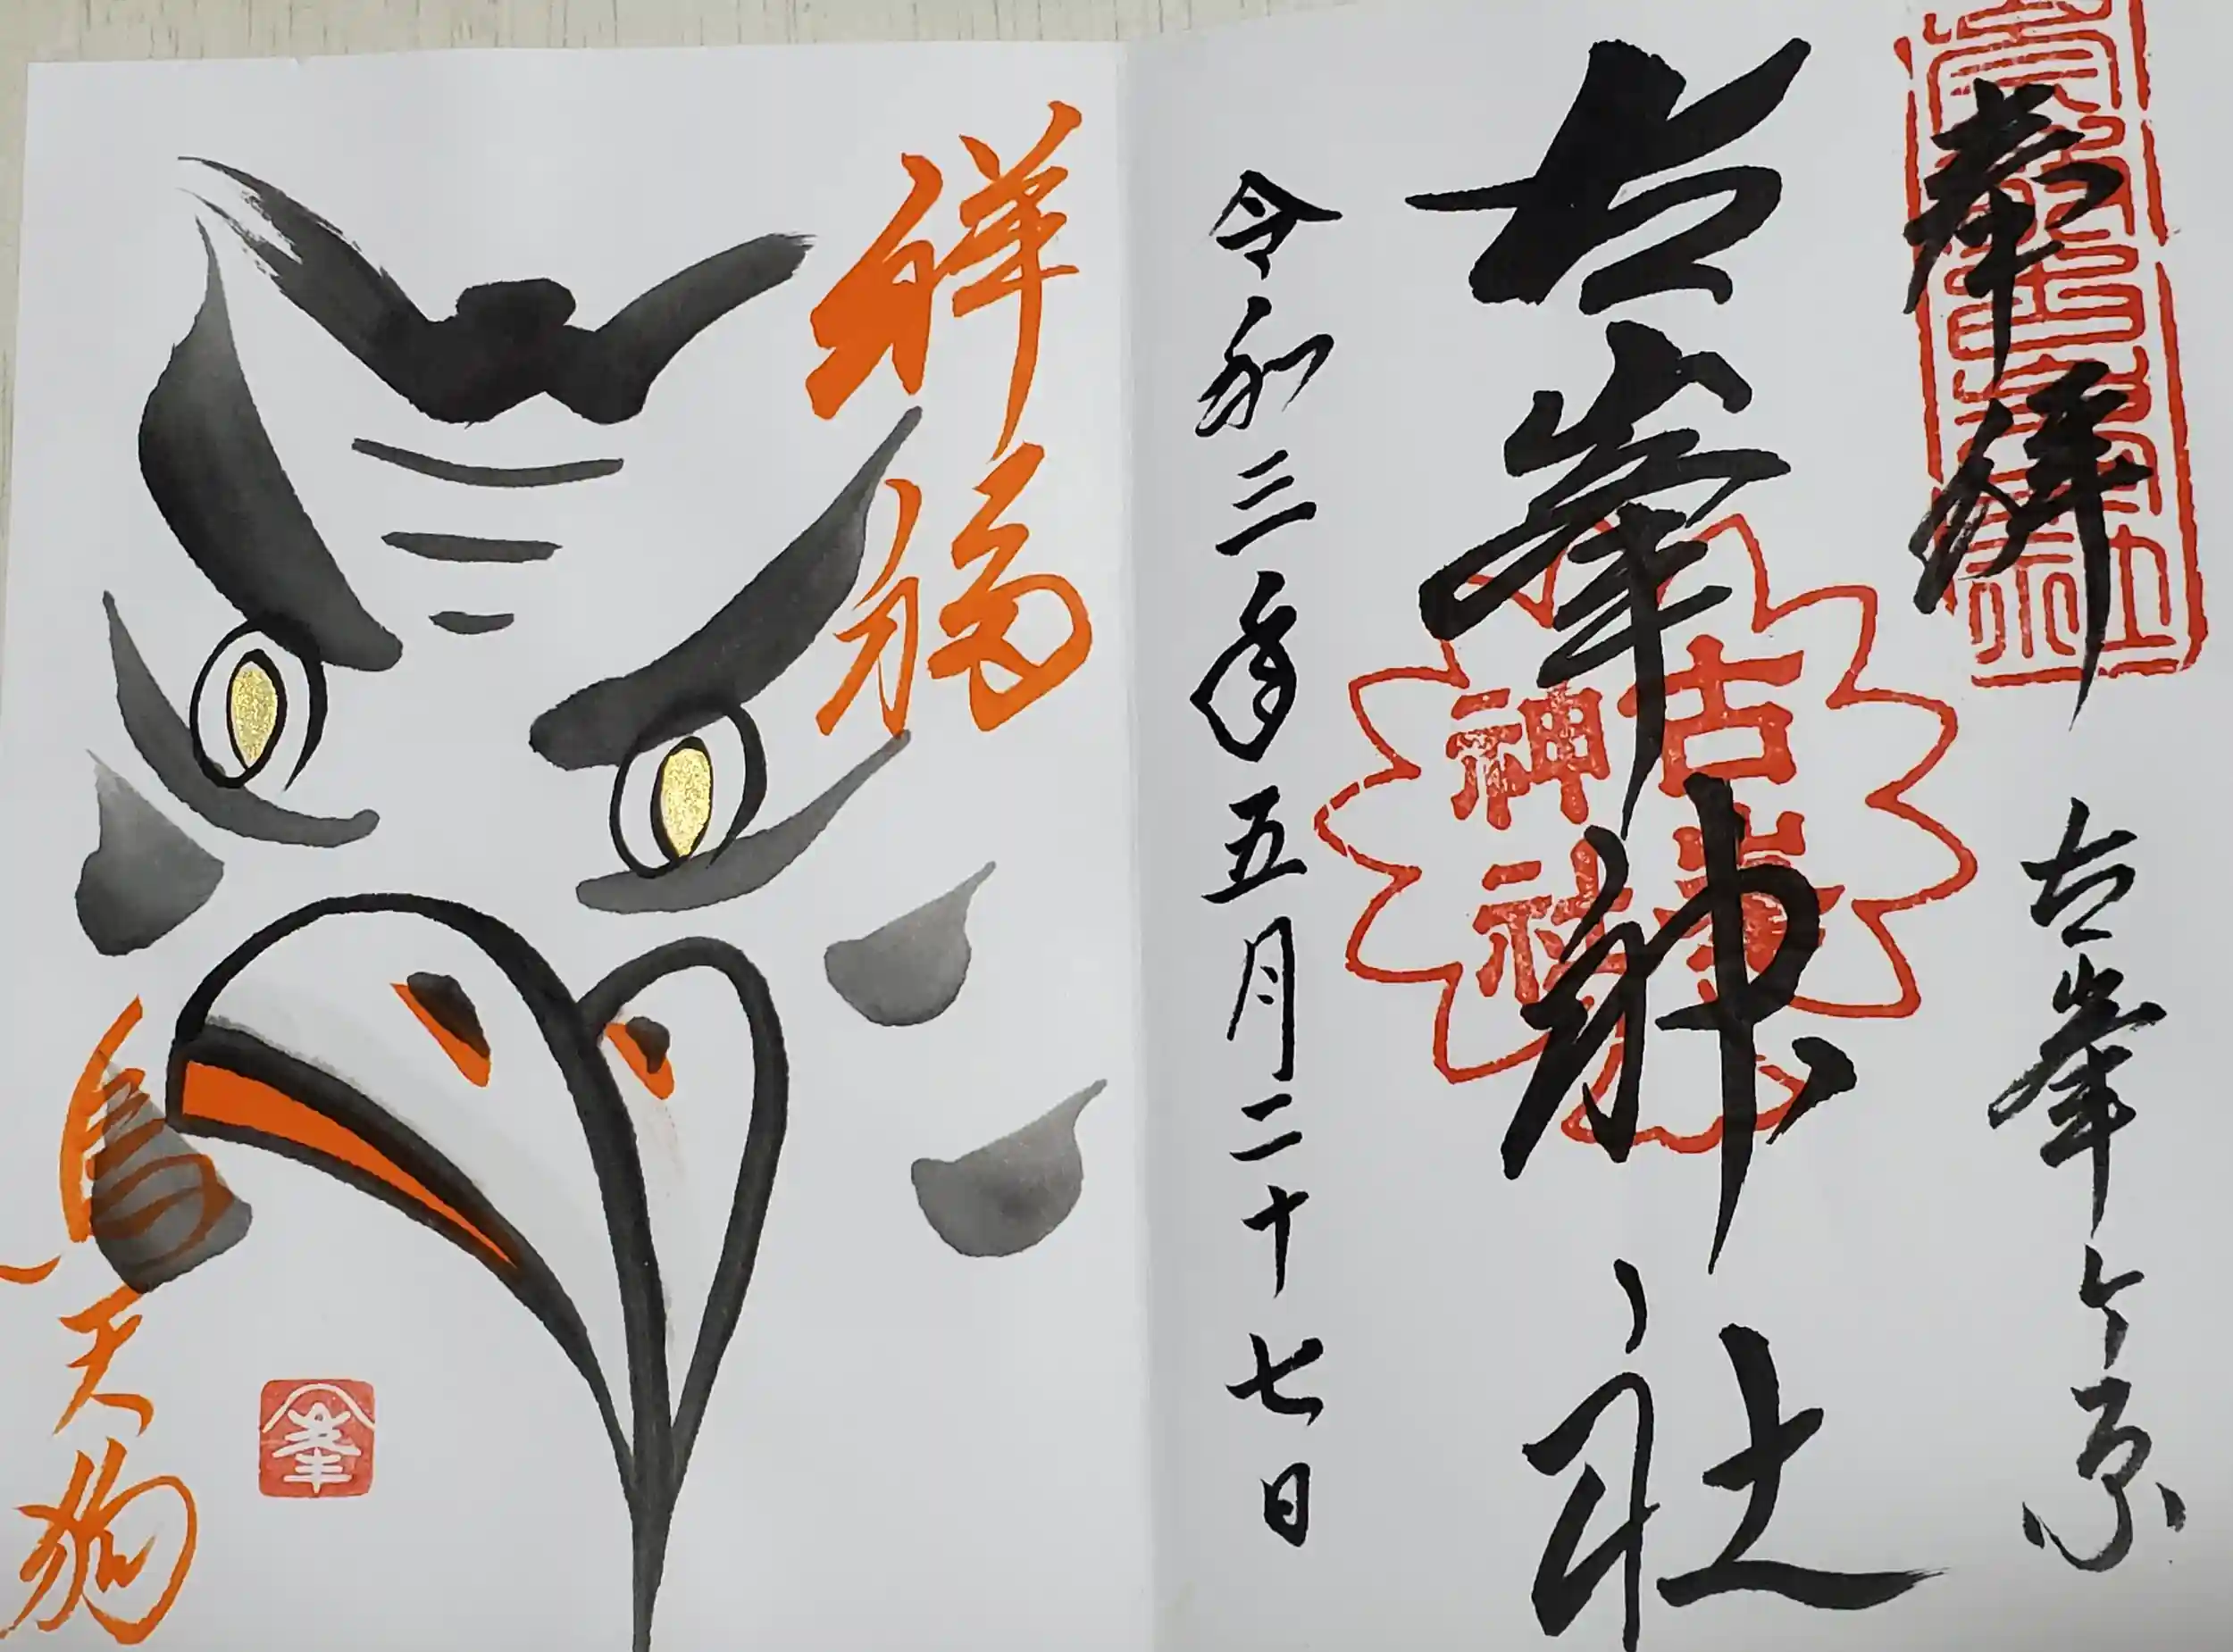 奉拝
古峯ヶ原
古峯神社
古峯
神社
令和三年五月二十七日
祥福
烏天狗
峯